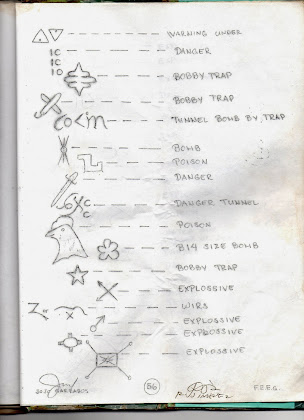 WARNING UNDER
1C DANGER
1C
10
BOBBY TRAP
BOBBY TRAP
TUNNEL BOMB BY TRAP
BOMB
POISON
DANGER
DANGER TUNNEL
POISON
B14 SIZE BOMB
BOBBY TRAP
EXPLOSSIVE
WIRS
EXPLOSSIVE
EXPLOSSIVE
EXPLOSSIVE
56
F.E.F.G.